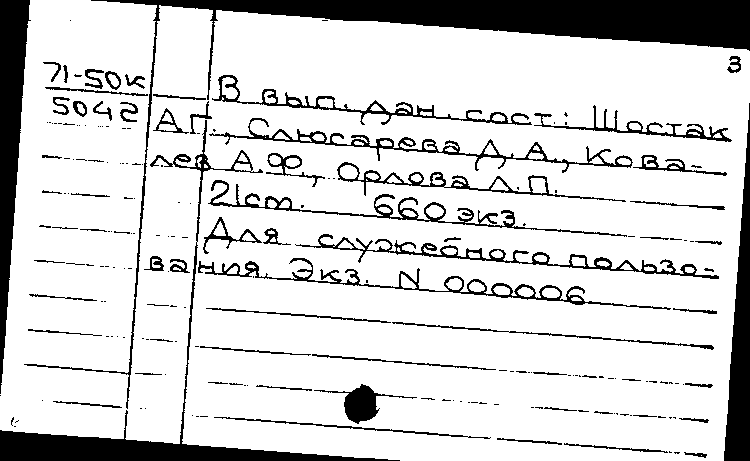 3
71-50к
5042
В вып. дан. сост.: Шостак
А.П., Слюсарева Д.А., Кова-
лев А.Ф., Орлова Л.П.
21см. 660 экз.
Для служебного пользо-
вания. Экз. N 000006